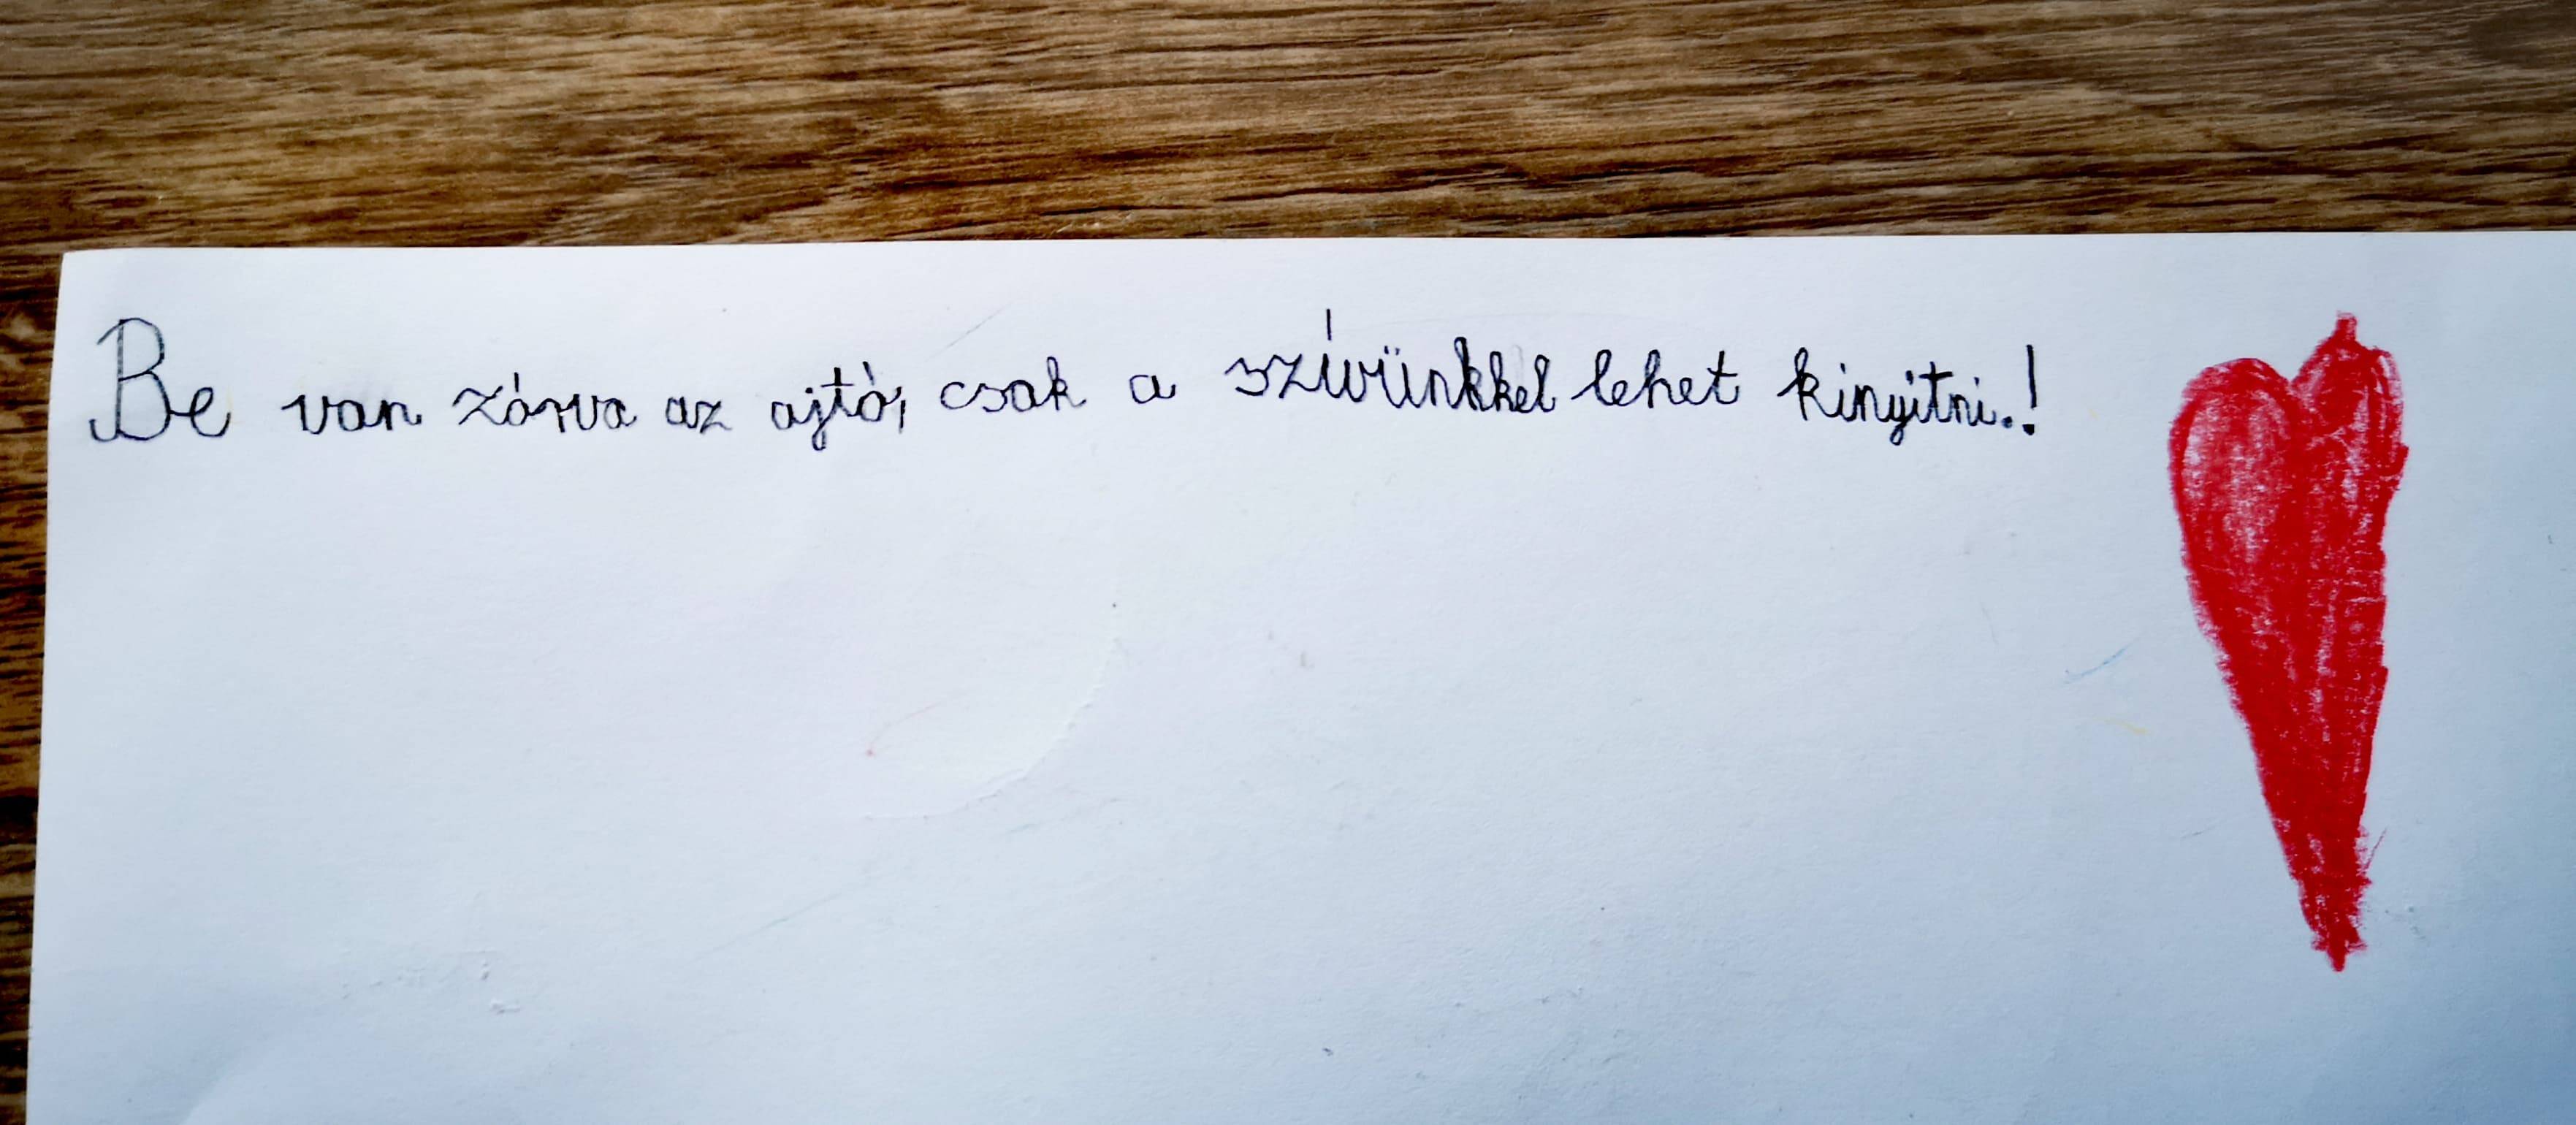 Be van zárva az ajtó, csak a szívünkkel lehet kinyitni.!